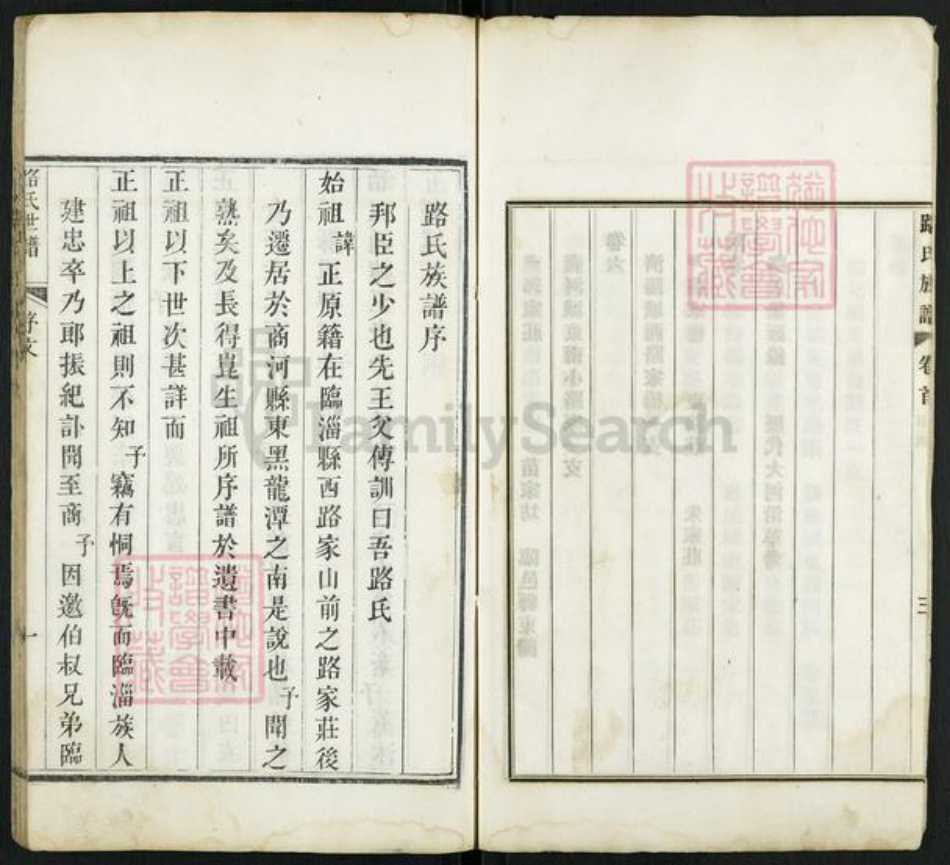 路氏族譜 卷首
三
路氏族譜序
邦臣之少也先王父傳訓曰吾路氏
始祖諱正原籍在臨淄縣西路家山前之路家莊後
乃遷居於商河縣東黑龍潭之南是說也予聞之
熟矣及長得崑生祖所序譜於遺書中載
正祖以下世次甚詳而
正祖以上之祖則不知予竊有恫焉既而臨淄族人
建忠卒乃郎振紀訃聞至商予因邀伯叔兄弟臨
路氏世譜 序文
一
FamilySearch